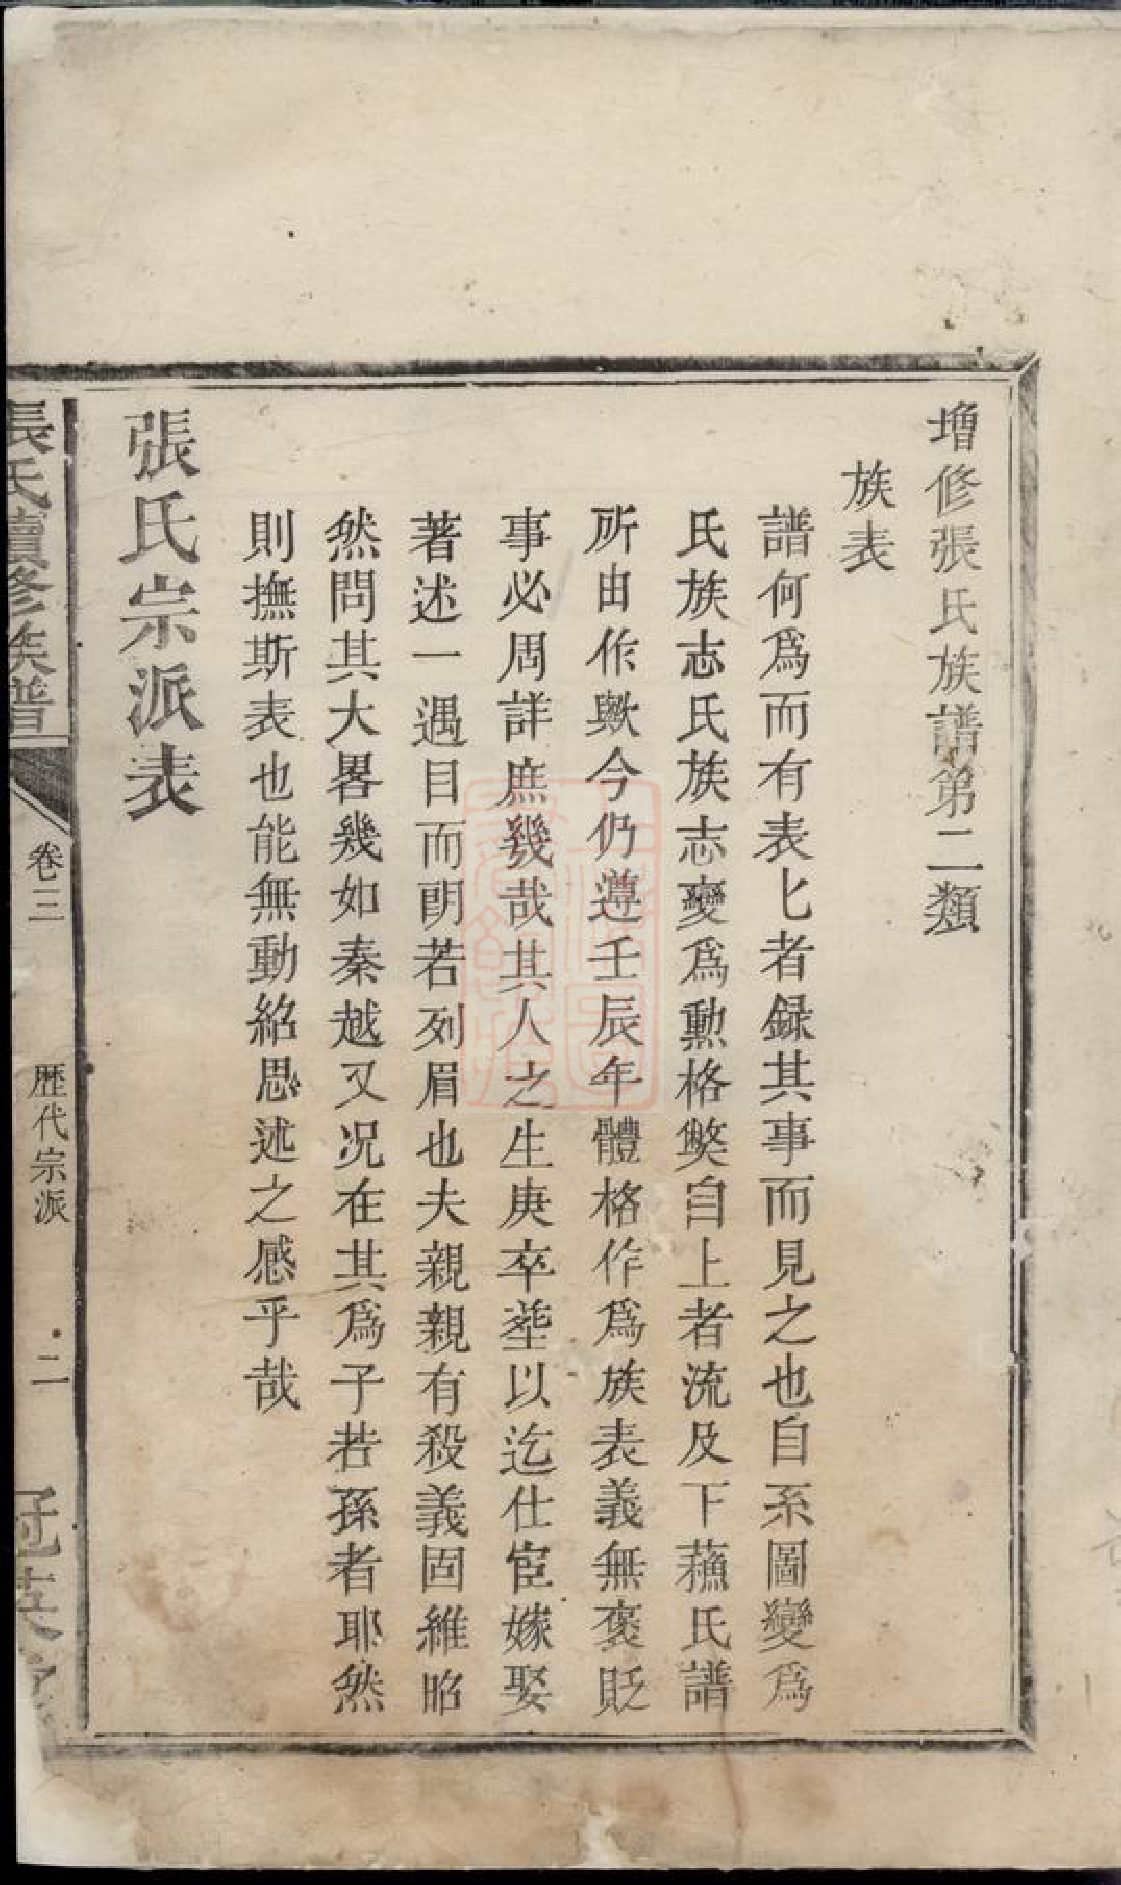 增修張氏族譜第二類
族表
譜何爲而有表匕者録其事而見之也自系圖變爲
氏族志氏族志變爲勲格獘自上者流及下蘓氏譜
所由作歟今仍遵壬辰年體格作爲族表義無褒貶
事必周詳庶幾哉其人之生庚卒塟以迄仕宦嫁娶
著述一遇目而朗若列眉也夫親親有殺義固維昭
然問其大畧幾如秦越又况在其爲子若孫者耶然
則撫斯表也能無動紹思述之感乎哉
張氏宗派表
張氏續修族譜
卷三
歷代宗派
二
冠英